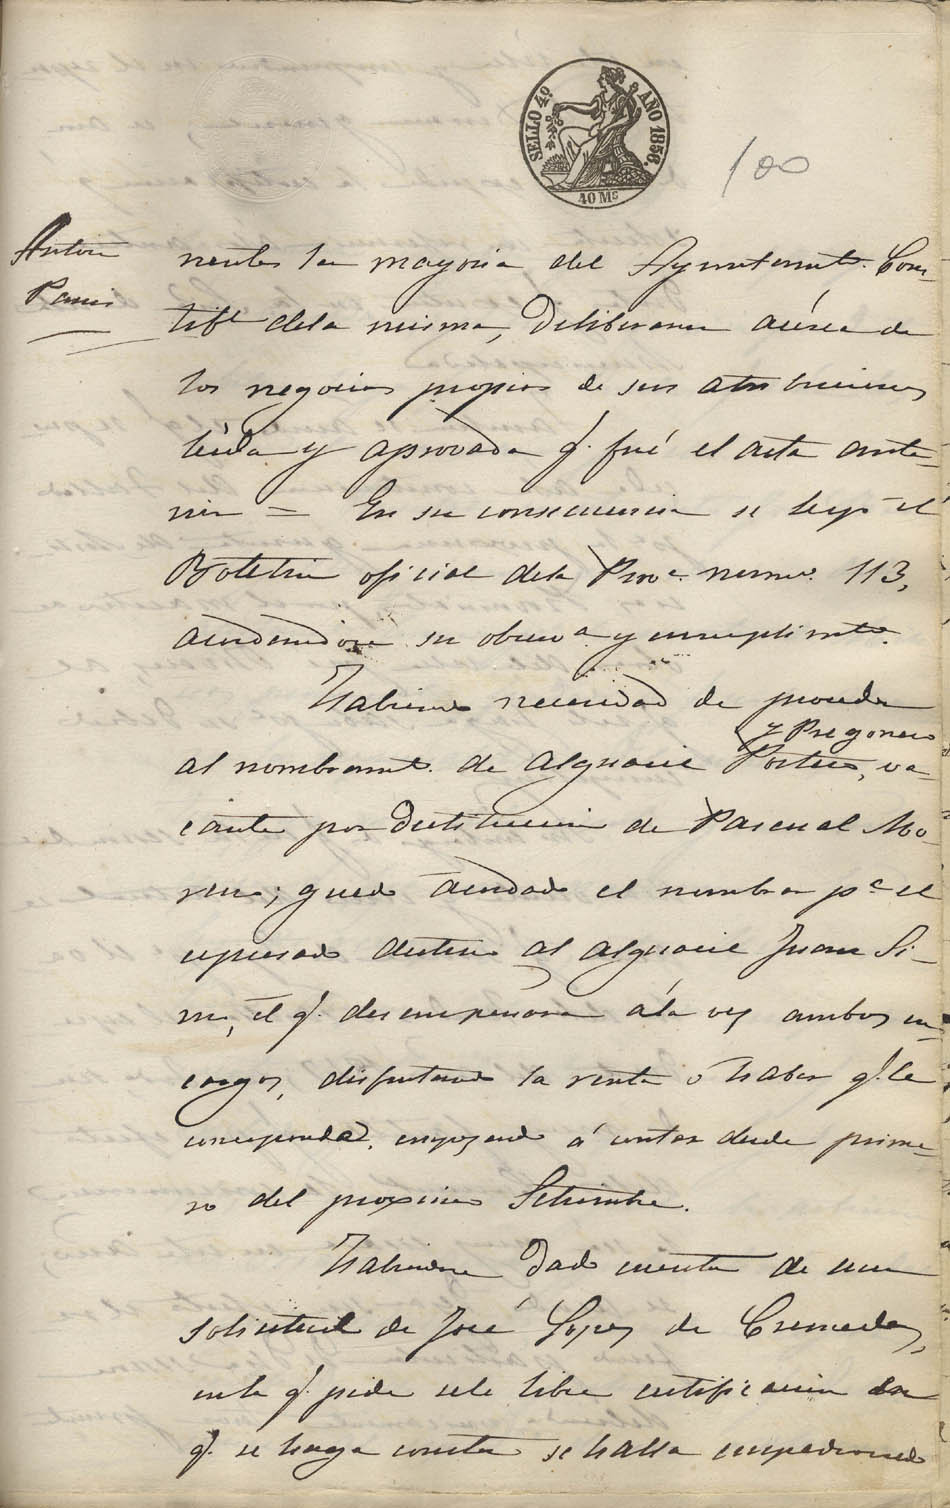 SELLO 4º AÑO 1856.
40 Ms
100
Antonio
nentes la mayoria del Ayuntamto. Cons
titl. dela misma, deliberaron acerca de
los negocios propios de sus atribuciones
leida y aprovada q. fué el acta ante-
rior = En su consecuencia se leyó el
Boletin oficial dela Prova. numo. 113,
acordandose su obserca. y cumplimto.
Habiendo necesidad de proceder
y Pregonero
al nombramto. de Alguacil Portero, va-
cante por destitucion de Pascual Mo-
reno; quedo acordado el nombrar pa. el
espresado destino al alguacil Juan Si-
mo, el q. desempeñara ála vez ambos en-
cargos, disfrutando la renta ó haber q. le
corresponda, empezando á contar desde prime-
ro del proximo Setiembre.
Habiendose dado cuenta de una
solicitud de José Lopez de Cremades,
enla q. pide sele libre certificacion en
q. se haga constar se halla empadronado